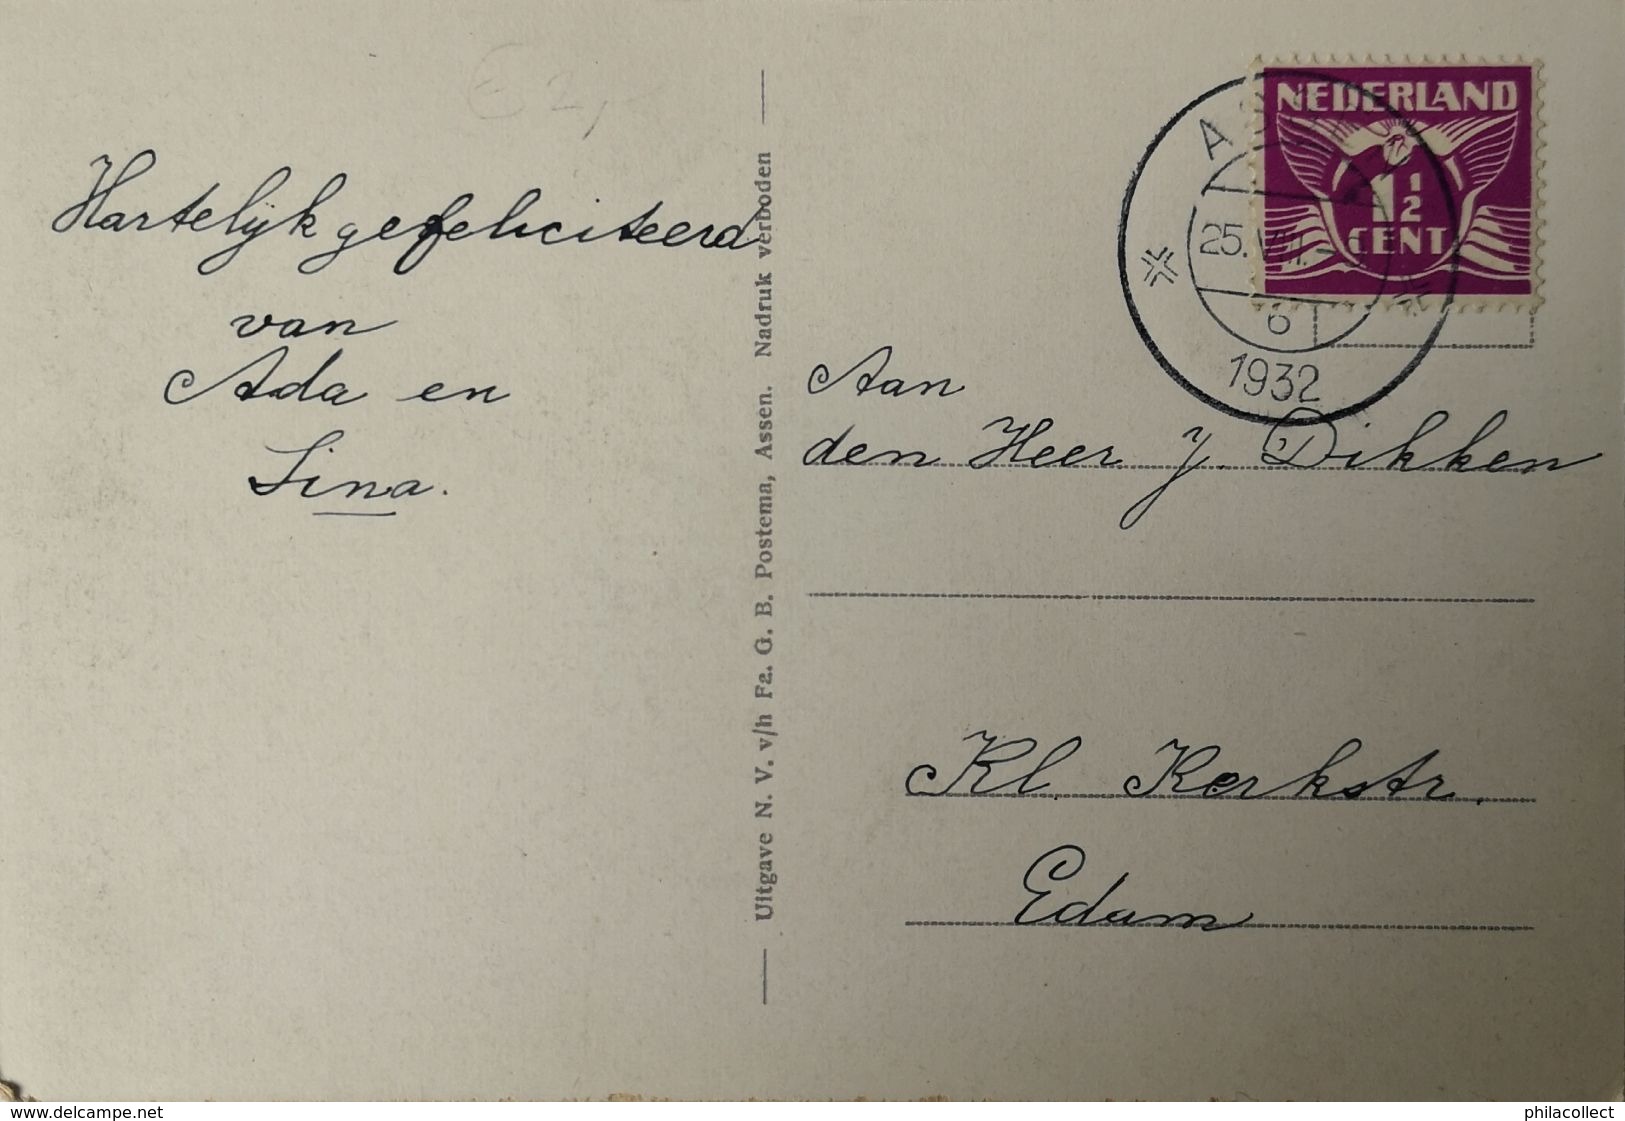 € 2,-
Hartelijk gefeliciteerd
van
Ada en
Lina.
Uitgave N. V. v/h Fa. G. B. Postema, Assen. Nadruk verboden
NEDERLAND
1½
CENT
25.VIII.
6
1932
Aan
den Heer J. Dikken
Kl. Kerkstr.
Edam
www.delcampe.net
philacollect